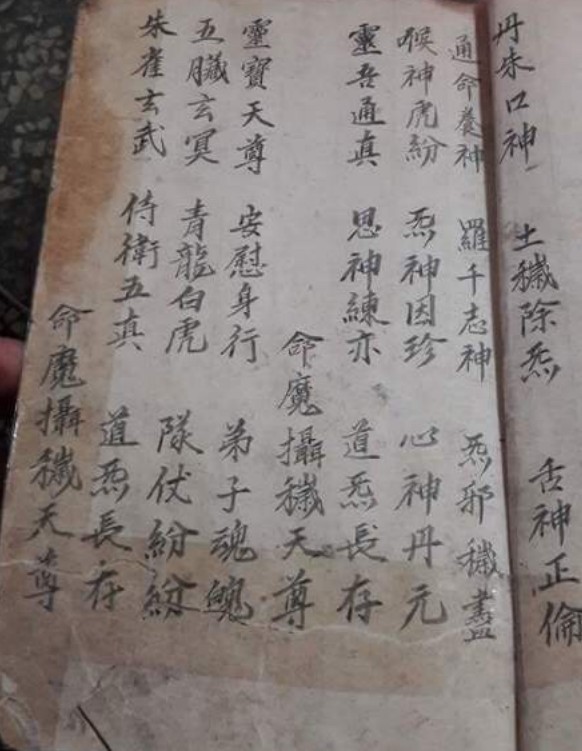 丹朱口神 土穢除炁 舌神正倫
通命養神 羅千志神 炁邪穢盡
喉神虎紛 炁神因珍 心神丹元
靈吾通真 思神練亦 道炁長存
命魔攝穢天尊
靈寶天尊 安慰身行 弟子魂魄
五臟玄冥 青龍白虎 隊仗紛紛
朱雀玄武 侍衛五真 道炁長存
命魔攝穢天尊